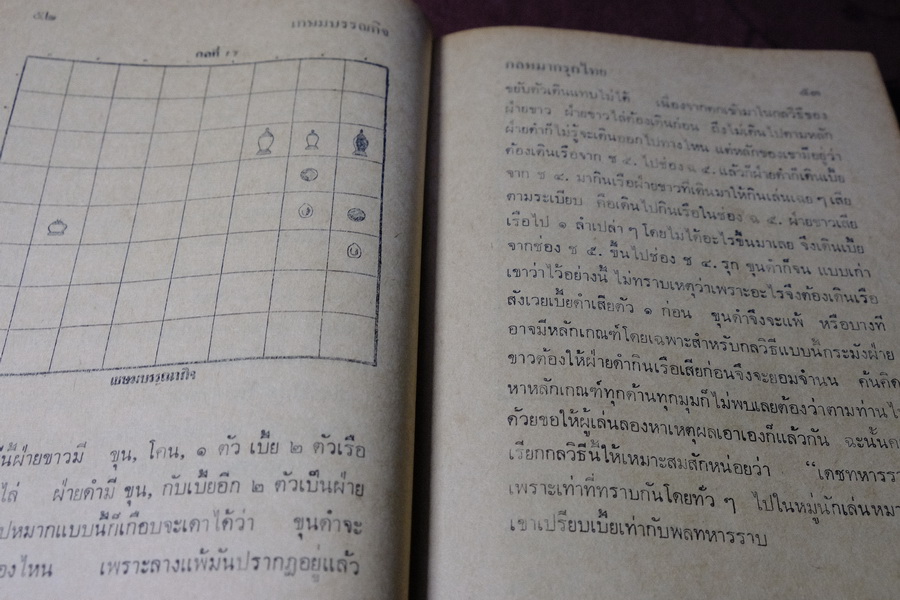 ๕๒
เกษมบรรณกิจ
กลที่ ๑๗
เกษมบรรณกิจ
นี้ฝ่ายขาวมี ขุน, โคน, ๑ ตัว เบี้ย ๒ ตัวเรือ
ไล่ ฝ่ายดำมี ขุน, กับเบี้ยอีก ๒ ตัวเป็นฝ่าย
ปหมากแบบนี้ก็เกือบจะเดาได้ว่า ขุนดำจะ
องไหน เพราะลางแพ้มันปรากฎอยู่แล้ว
กลหมากรุกไทย
๕๓
ขยับตัวเดินแทบไม่ได้ เนื่องจากตกเข้ามาในกลวิธีของ
ฝ่ายขาว ฝ่ายขาวไล่ต้องเดินก่อน ถึงไม่เดินไปตามหลัก
ฝ่ายดำก็ไม่รู้จะเดินออกไปทางไหน แต่หลักของเขามีอยู่ว่า
ต้องเดินเรือจาก ช ๕. ไปช่อง ๔. แล้วก็ฝ่ายดำก็เดินเบี้ย
จาก ช ๔. มากินเรือฝ่ายขาวที่เดินมาให้กินเล่นเฉย ๆ เสีย
ตามระเบียบ คือเดินไปกินเรือในช่อง ๔. ฝ่ายขาวเสีย
เรือไป ๑ ลำเปล่า ๆ โดยไม่ได้อะไรขึ้นมาเลย จึงเดินเบี้ย
จากช่อง ช ๕. ขึ้นไปช่อง ช ๔. รุก ขุนดำก็จน แบบเก่า
เขาว่าไว้อย่างนี้ ไม่ทราบเหตุว่าเพราะอะไรจึงต้องเดินเรือ
สังเวยเบี้ยดำเสียตัว ๑ ก่อน ขุนดำจึงจะแพ้ หรือบางที
อาจมีหลักเกณฑ์โดยเฉพาะสำหรับกลวิธีแบบนี้กระมังฝ่าย
ขาวต้องให้ฝ่ายดำกินเรือเสียก่อนจึงจะยอมจำนน ค้นคิด
หาหลักเกณฑ์ทุกด้านทุกมุมก็ไม่พบเลยต้องว่าตามท่านไ
ด้วยขอให้ผู้เล่นลองหาเหตุผลเอาเองก็แล้วกัน ฉะนั้นค
เรียกกลวิธีนี้ให้เหมาะสมสักหน่อยว่า “เดชทหารรา
เพราะเท่าที่ทราบกันโดยทั่ว ๆ ไปในหมู่นักเล่นหมา
เขาเปรียบเบี้ยเท่ากับพลทหารราบ